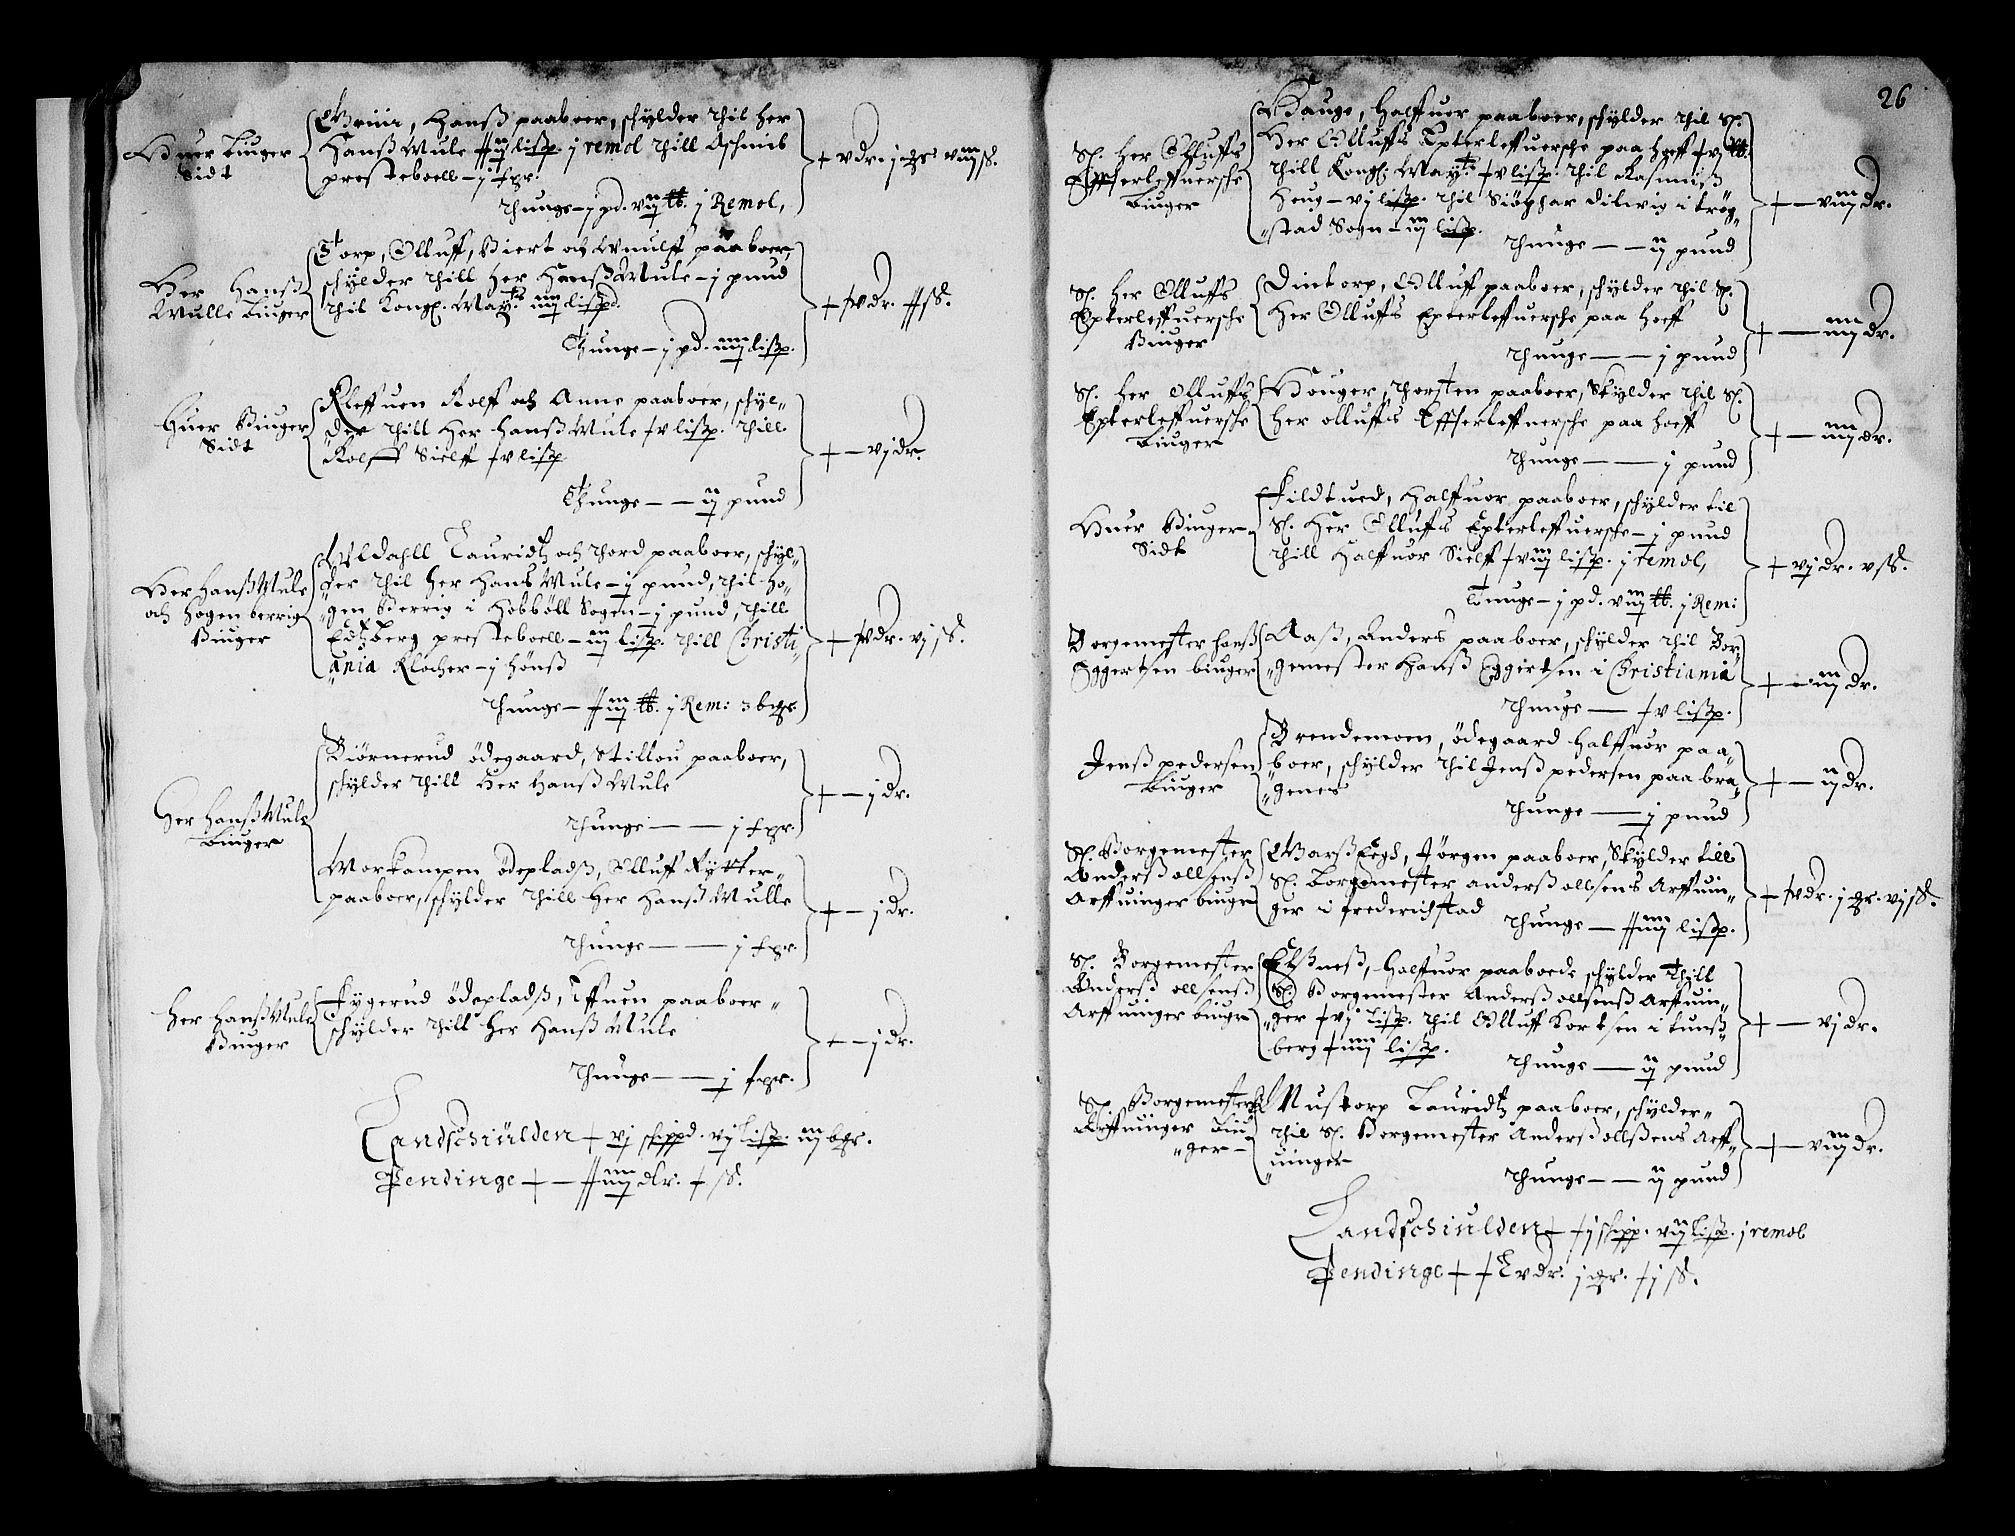 Huer Biuger
Sidt
Gruir, Hanß paaboer, schylder thil her
Hanß Mule xiij lißp. j remol thill Aschimb
presteboell – j fgr.
Thunge – j pd. viij ℔. j Remol,
+ vdr. j qr viij ß.
Her Hanß
Mulle Biuger
Torp, Olluff, Siert och Wulff paaboer,
schylder thill her Hanß Mule – j pund
thil Kongl. Maytt. iiij lißpd.
Thunge – j pd. iiij lißp.
+ ivdr. xx ß.
Huer Biuger
Sidt
Kleffuen Rolff och Anne paaboer, schyl„
der thill Her Hanß Mule xv lißp. Thill
Rolff Sielff xv lißp
Thunge — ij pund
+ – vj dr.
Her Hanß Mule
och Hogen berrig
Biuger
Uldahll Lauridtz och Thord paaboer, schyl„
der thil her Hans Mule – ij pund, thil Ho„
gen Berrig i Hobböll Sogen – j pund, thill
Edtzberg presteboell – iij lißp. thill Christi„
„ania Klocher – j Hönß
Thunge – xiij ℔. j Rem: 3 bgr.
+ ivdr. vj ß.
Her Hanß Mule
Biuger
Biörnerud ödegaard, Stillou paaboer,
schylder thill Her Hanß Mule
Thunge — j fgr.
+ – j dr.
Morkampen ödepladß, Olluff Rytter„
paaboer, schylder thill Her Hanß Mulle
Thunge — j fgr
+ – j dr.
Her Hanß Mule
Biuger
Fygerud ödepladß, Effuen paaboer„
schylder thill Her Hanß Mule
Thunge — j fgr.
+ – j dr.
Landschiülden + vj schippd. vj lißp. iij bgr.
Pendinge + – xxiiij dlr. x ß.
26
Sl. Her Olluffs
Epterleffuersche
Biuger
Hauge, Halffuor paaboer, schylder thil Sl.
Her Olluffs Epterleffuersche paa Hoeff xvj ℔.
thill Kongl. Maytt. xv lißp. thil Rasmuß
Heug – vj lißp. thil Siöghar dilwig i trög„
„stad Sogn – iij lißp.
Thunge — ij pund
+ – viij dr.
Sl. Her Olluffs
Epterleffuersche
Biuger
Dintorp, Olluff paaboer, schylder thil Sl.
Her Olluffs Epterleffuersche paa Hoeff
Thunge — j pund
+ — iiij dr.
Sl. Her Olluffs
Epterleffuersche
Biuger
Houger, Thorsten paaboer, Skylder thil Sl.
Her olluffs Effterleffuersche paa Hoeff
Thunge — j pund
+ – iiij dr.
Huer Biuger
Sidt
Fildtued, Halffuor paaboer, schylder til
Sl. Her Olluffs Epterleffuersche – j pund
thill Halffuor Sielff xviij lißp. j remol,
Tunge – j pd. viij ℔. j Rem:
+ vj dr. v ß.
Borgemester Hanß
Eggertsen biuger
Aaß, Anders paaboer, schylder thil Bor„
„gemester Hanß Eggertsen i Christiania
Thunge — xv lißp.
+ – iij dr.
Jenß pedersen
Biuger
Brendemoen, ödegaard Halffuor paa„
„boer, schylder thil Jenß pedersen paa bra„
„genes
Thunge — j pund
+ – ij dr.
Sl. Borgemester
Anderß ollsenß
Arffuinger biuger
Warß Eegd, Jörgen paaboer, Skylder till
Sl. Borgemester anderß ollsens Arffuin„
ger i frederichstad
Thunge — xxiiij lißp.
+ ivdr. j qr. vj ß.
Sl. Borgemester
Anderß ollsenß
Arffuinger biuger
Elßneß, Halffuor paaboede schylder Thill
Sl. Borgemester Anderß ollsenß Arffuin„
„ger xvj lißp. thil Olluff Kortsen i tunß„
berg xiiij lißp.
Thunge — ij pund
+ — vj dr.
Sl. Borgemesters
Arffuinger Biu„
„ger –
Nustorp Lauridtz paaboer, schylder„
thil Sl. Borgemester Anderß ollßens Arff„
„uinger
Thunge — ij pund
+ – viij dr.
Landschiulden + xj schipp. vij lißp. j remol
Pendinge + + Lvdr. j qr. xj ß.